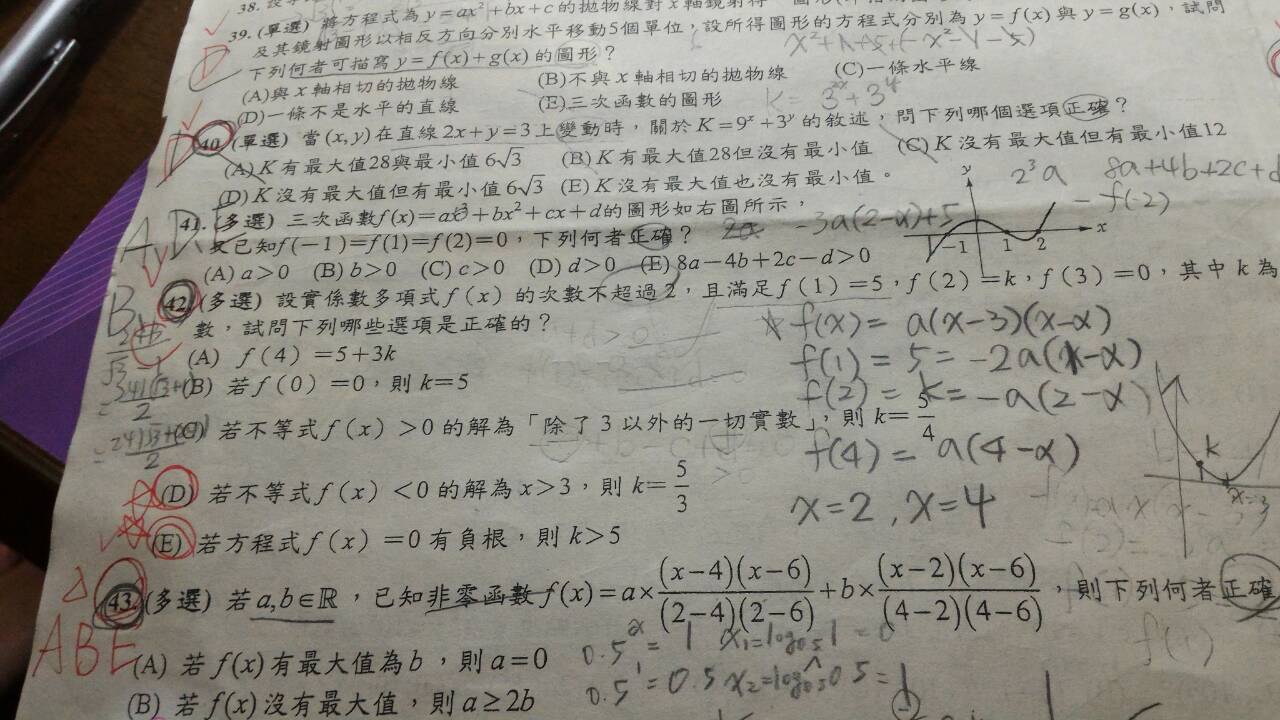 39. (單選) 將方程式為 y=ax²+bx+c 的拋物線對 x 軸鏡射得
及其鏡射圖形以相反方向分別水平移動5個單位,設所得圖形的方程式分別為 y=f(x) 與 y=g(x),試問
下列何者可描寫 y=f(x)+g(x) 的圖形?
(A)與 x 軸相切的拋物線 (B)不與 x 軸相切的拋物線 (C)一條水平線
(D)一條不是水平的直線 (E)三次函數的圖形
D
40. (單選) 當 (x,y) 在直線 2x+y=3 上變動時,關於 K=9ˣ+3ʸ 的敘述,問下列哪個選項正確?
(A) K 有最大值28與最小值 6√3 (B) K 有最大值28但沒有最小值 (C) K 沒有最大值但有最小值12
(D) K 沒有最大值但有最小值 6√3 (E) K 沒有最大值也沒有最小值。
D
2³a 8a+4b+2c+d
-f(-2)
41. (多選) 三次函數 f(x)=ax³+bx²+cx+d 的圖形如右圖所示,
又已知 f(-1)=f(1)=f(2)=0,下列何者正確?
(A) a>0 (B) b>0 (C) c>0 (D) d>0 (E) 8a-4b+2c-d>0
A D
-3a(2-α)+5
y
x
-1 1 2
42. (多選) 設實係數多項式 f(x) 的次數不超過 2,且滿足 f(1)=5,f(2)=k,f(3)=0,其中 k 為
數,試問下列哪些選項是正確的?
(A) f(4)=5+3k
(B) 若 f(0)=0,則 k=5
(C) 若不等式 f(x)>0 的解為「除了 3 以外的一切實數」,則 k=5/4
(D) 若不等式 f(x)<0 的解為 x>3,則 k=5/3
(E) 若方程式 f(x)=0 有負根,則 k>5
f(x)=a(x-3)(x-α)
f(1)=5=-2a(1-α)
f(2)=k=-a(2-α)
f(4)=a(4-α)
x=2,x=4
k
x=3
43. (多選) 若 a,b∈ℝ,已知非零函數 f(x)=a×(x-4)(x-6)/(2-4)(2-6)+b×(x-2)(x-6)/(4-2)(4-6),則下列何者正確
ABE
(A) 若 f(x) 有最大值為 b,則 a=0
(B) 若 f(x) 沒有最大值,則 a≥2b
f(1)